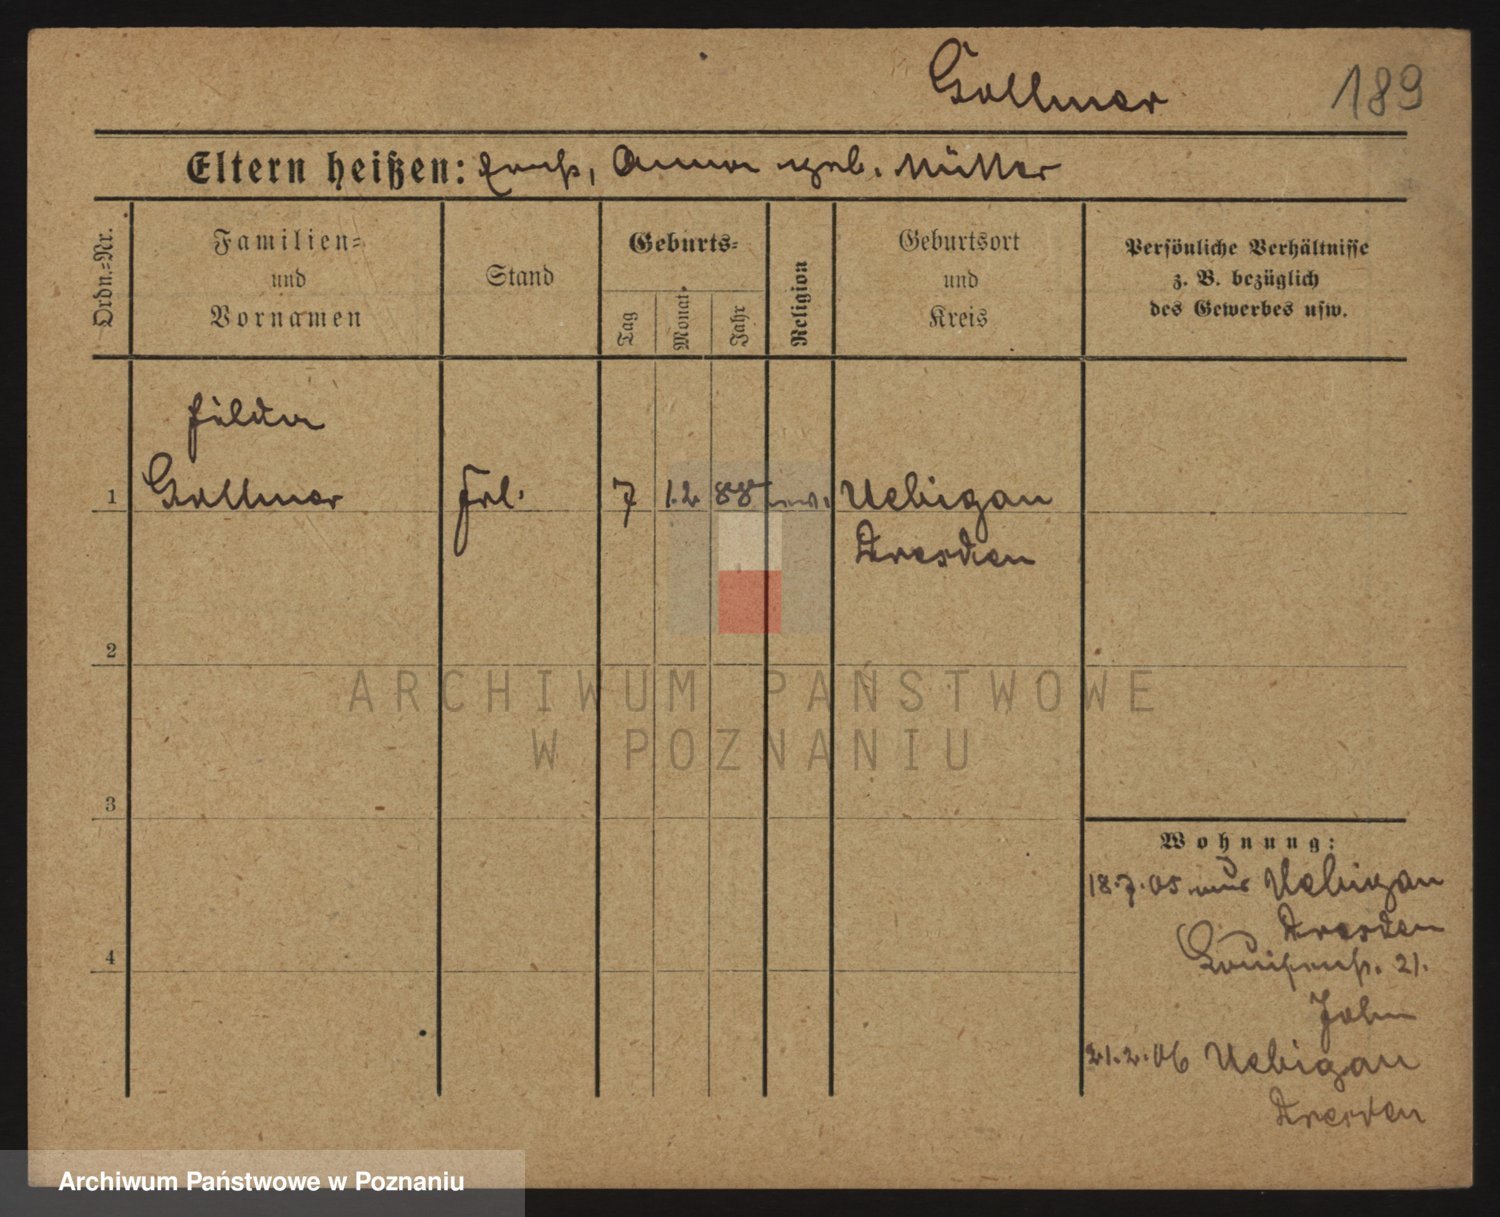 Gollmer 189
Eltern heißen: Ernst, Anna geb. Müller
Ordn.=Nr.
Familien=
und
Vornamen
Stand
Geburts=
Tag
Monat
Jahr
Religion
Geburtsort
und
Kreis
Persönliche Verhältnisse
z. B. bezüglich
des Gewerbes usw.
Hilda
1 Gollmer Frl. 7 12 88 ev. Uebigau
Dresden
2
ARCHIWUM PAŃSTWOWE
W POZNANIU
3
Wohnung:
18.7.05 aus Uebigau
Dresden
21.
John
4
21.2.06 Uebigau
Dresden
Archiwum Państwowe w Poznaniu